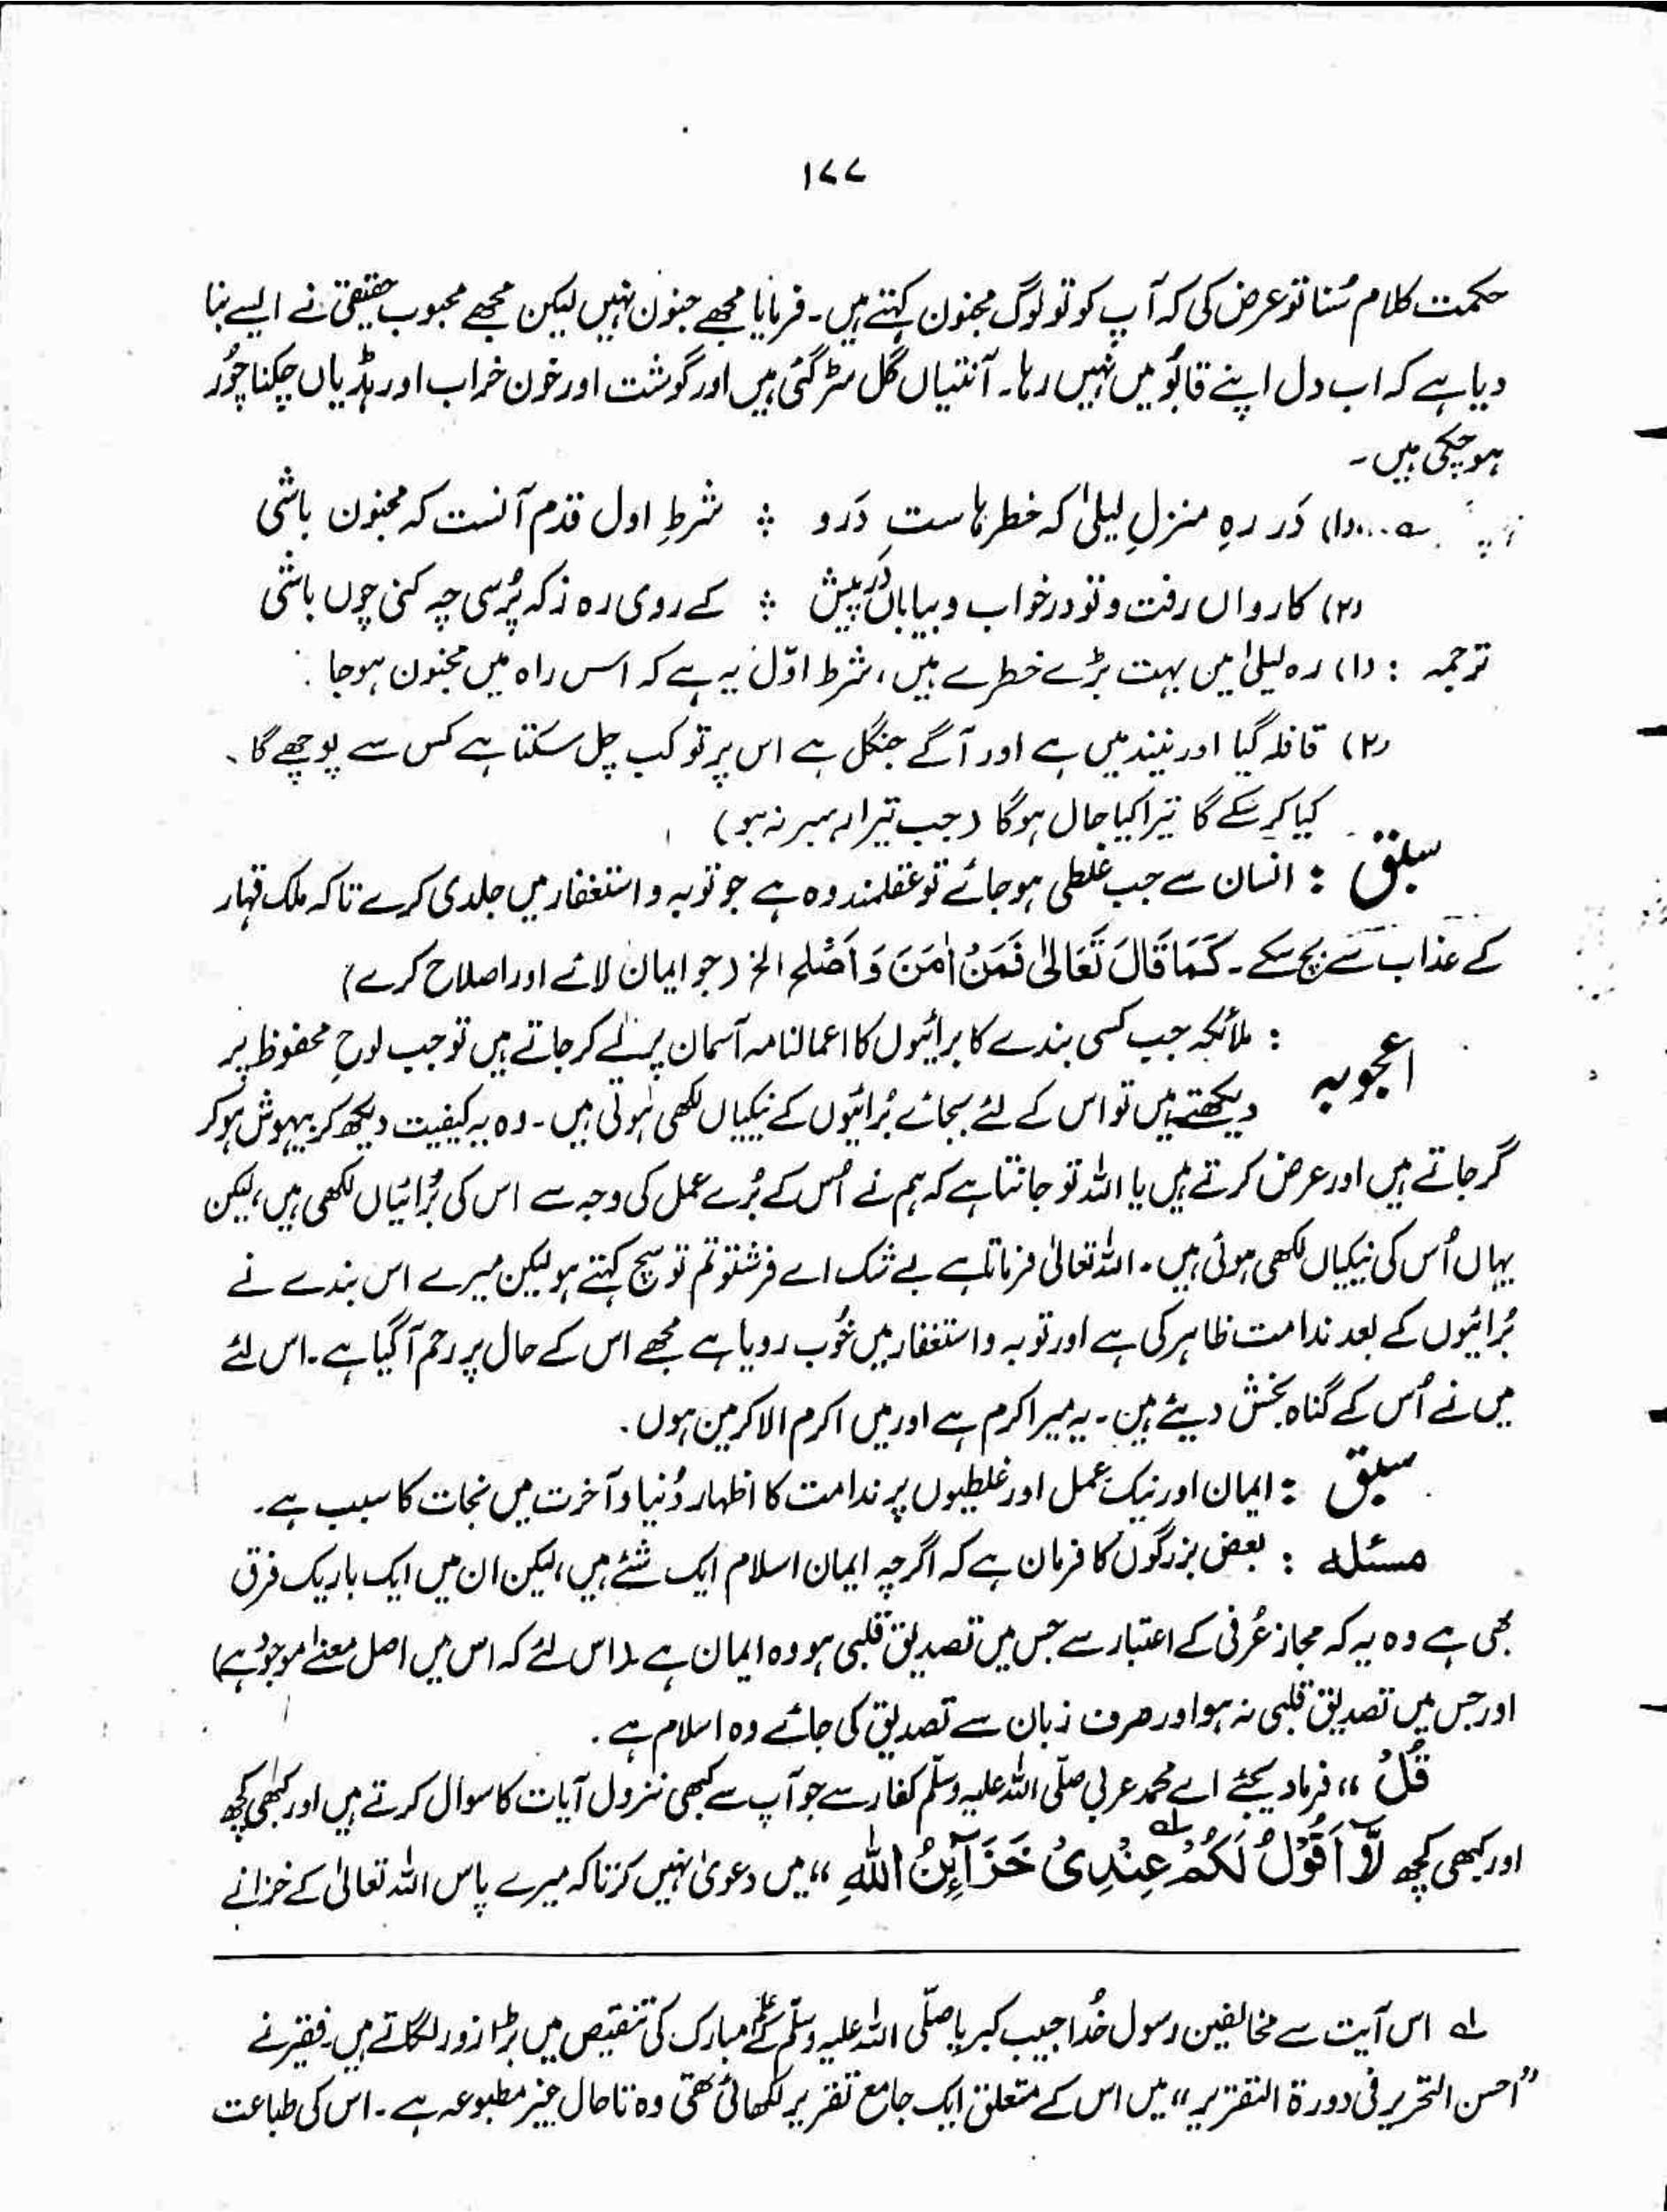 ۱۷۷
حکمت کلام سُنا تو عرض کی کہ آپ کو تو لوگ مجنون کہتے ہیں۔ فرمایا مجھے جنون نہیں لیکن مجھے محبوب حقیقی نے ایسے بنا
دیا ہے کہ اب دل اپنے قابُو میں نہیں رہا۔ آنتیاں گل سڑ گئی ہیں اور گوشت اور خون خراب اور ہڈیاں چکنا چُور
ہو چکی ہیں۔
(۱) دَر رہِ منزلِ لیلیٰ کہ خطرہاست دَرو ؞ شرطِ اول قدم آنست کہ مجنون باشی
(۲) کارواں رفت و تو در خواب و بیاباں در پیش ؞ کے روی رہ ز کہ پُرسی چہ کنی چوں باشی
ترجمہ : (۱) رہ لیلیٰ میں بہت بڑے خطرے ہیں، شرط اوّل یہ ہے کہ اس راہ میں مجنون ہو جا۔
(۲) قافلہ گیا اور نیند میں ہے اور آگے جنگل ہے اس پر تو کب چل سکتا ہے کس سے پوچھے گا،
کیا کر سکے گا تیرا کیا حال ہوگا (جب تیرا رہبر نہ ہو)
سبق : انسان سے جب غلطی ہو جائے تو عقلمند وہ ہے جو توبہ و استغفار میں جلدی کرے تاکہ ملک قہار
کے عذاب سے بچ سکے۔ کَمَا قَالَ تَعَالیٰ فَمَنْ اٰمَنَ وَ اَصْلَحَ الخ (جو ایمان لائے اور اصلاح کرے)
اعجوبہ : ملائکہ جب کسی بندے کا برائیوں کا اعمالنامہ آسمان پر لے کر جاتے ہیں تو جب لوحِ محفوظ پر
دیکھتے ہیں تو اس کے لئے بجائے بُرائیوں کے نیکیاں لکھی ہوتی ہیں۔ وہ یہ کیفیت دیکھ کر بیہوش ہو کر
گر جاتے ہیں اور عرض کرتے ہیں یا اللہ تو جانتا ہے کہ ہم نے اُس کے بُرے عمل کی وجہ سے اس کی بُرائیاں لکھی ہیں، لیکن
یہاں اُس کی نیکیاں لکھی ہوئی ہیں۔ اللہ تعالیٰ فرماتا ہے بے شک اے فرشتو تم تو سچ کہتے ہو لیکن میرے اس بندے نے
بُرائیوں کے بعد ندامت ظاہر کی ہے اور توبہ و استغفار میں خُوب رویا ہے مجھے اس کے حال پر رحم آگیا ہے۔ اس لئے
میں نے اُس کے گناہ بخش دیئے ہیں۔ یہ میرا کرم ہے اور میں اکرم الاکرمین ہوں۔
سبق : ایمان اور نیک عمل اور غلطیوں پر ندامت کا اظہار دُنیا و آخرت میں نجات کا سبب ہے۔
مسئلہ : بعض بزرگوں کا فرمان ہے کہ اگرچہ ایمان اسلام ایک شئے ہیں، لیکن ان میں ایک باریک فرق
بھی ہے وہ یہ کہ مجاز عُرفی کے اعتبار سے جس میں تصدیق قلبی ہو وہ ایمان ہے۔ (اس لئے کہ اس میں اصل معنےٰ موجود ہے)
اور جس میں تصدیق قلبی نہ ہو اور صرف زبان سے تصدیق کی جائے وہ اسلام ہے۔
قُلْ ،، فرما دیجئے اے محمد عربی صلّی اللہ علیہ وسلّم کفار سے جو آپ سے کبھی نزول آیات کا سوال کرتے ہیں اور کبھی کچھ
اور کبھی کچھ لَّاۤ اَقُوْلُ لَکُمْ لہ عِنْدِیْ خَزَآئِنُ اللّٰہِ ،، میں دعویٰ نہیں کرتا کہ میرے پاس اللہ تعالیٰ کے خزانے
لہ اس آیت سے مخالفین رسول خُدا حبیب کبریا صلّی اللہ علیہ وسلّم کے علم مبارک کی تنقیص میں بڑا زور لگاتے ہیں۔ فقیر نے
”احسن التحریر فی دورۃ التقریر،، میں اس کے متعلق ایک جامع تقریر لکھائی تھی وہ تا حال غیر مطبوعہ ہے۔ اس کی طباعت